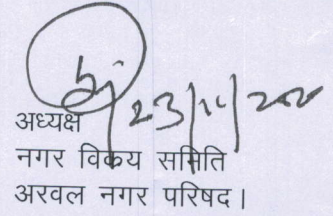 23/11/202
अध्यक्ष
नगर विकय समिति
अरवल नगर परिषद।